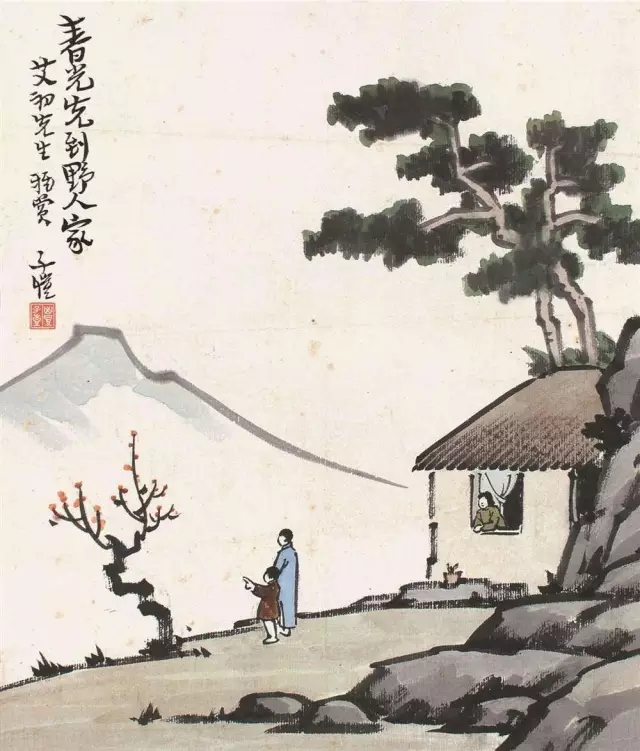 春光先到野人家
艾初先生雅赏
子恺